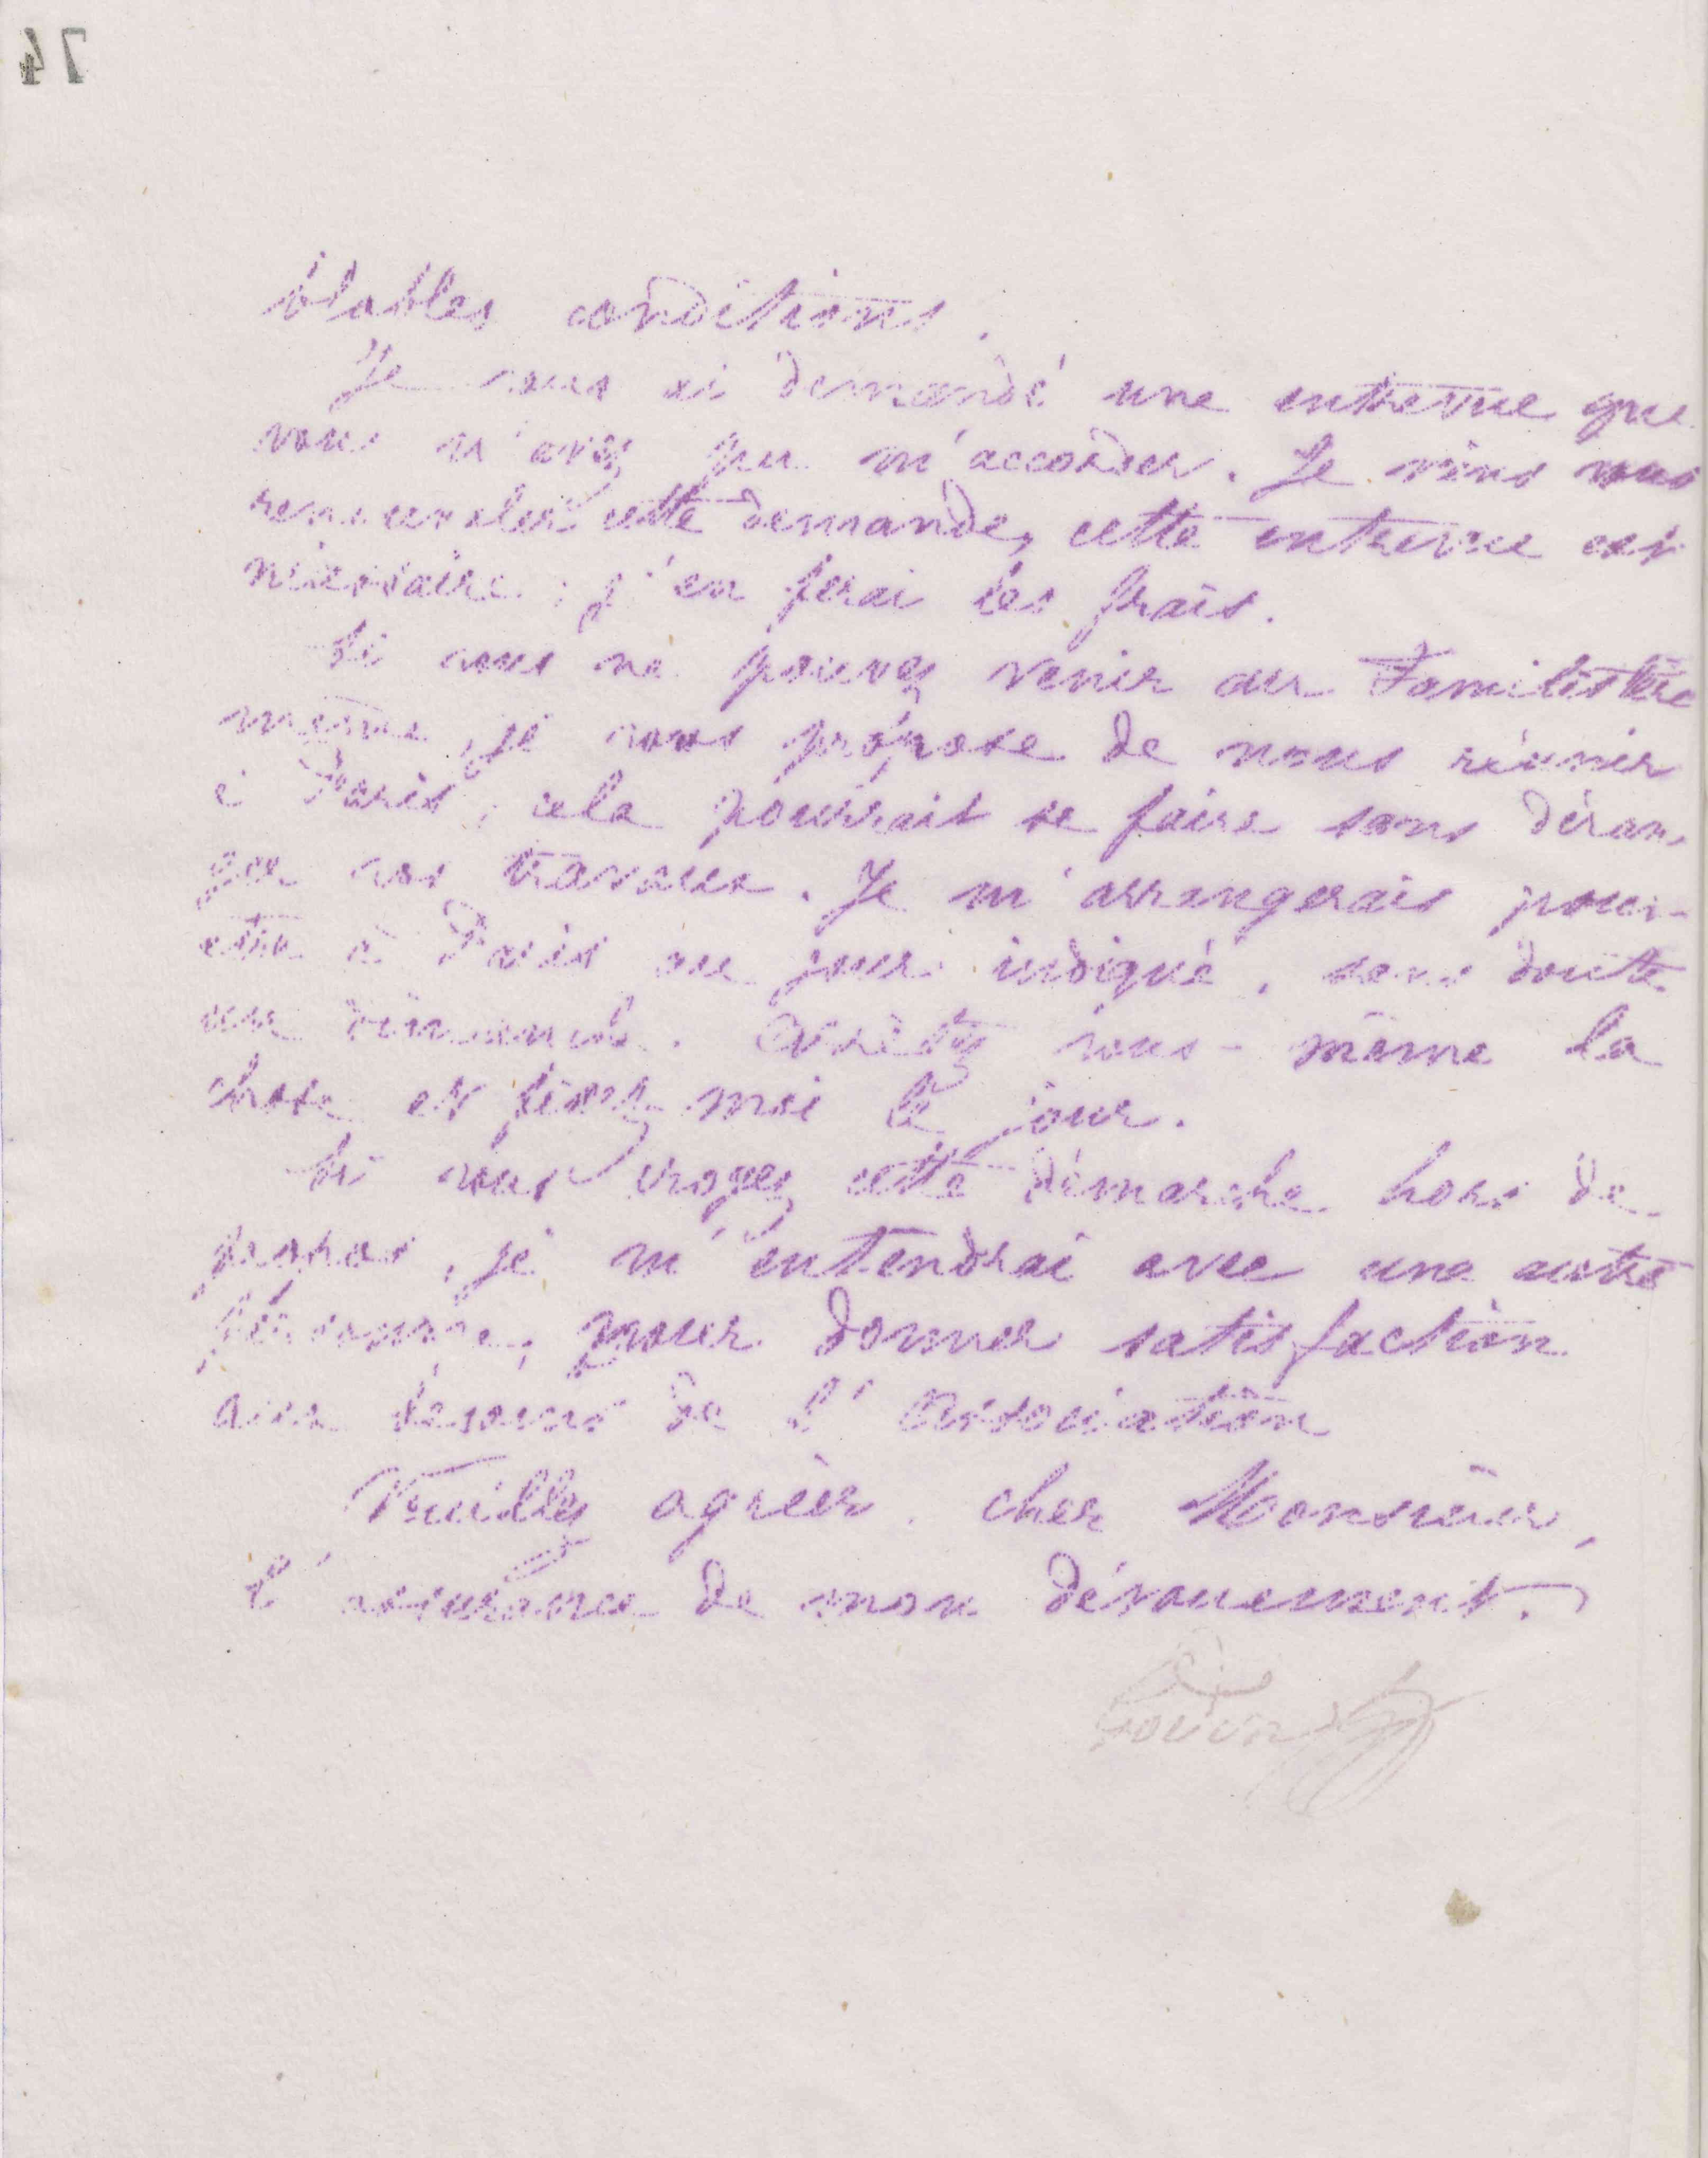 74
itables conditions.
Je vous ai demandé une entrevue que
vous n'avez pu m'accorder. Je viens vous
renouveler cette demande, cette entrevue est
nécessaire ; j'en ferai les frais.
Si vous ne pouvez venir au Familistère
même, je vous propose de nous réunir
à Paris, cela pourrait se faire sans déran-
ger vos travaux. Je m'arrangerais pour
être à Paris au jour indiqué, sans doute
un dimanche. Arrêtez vous-même la
chose et fixez moi le jour.
Si vous croyez cette démarche hors de
propos, je m'entendrai avec une autre
personne, pour donner satisfaction
aux besoins de l'Association
Veuillez agréer, cher Monsieur,
l'assurance de mon dévouement.
Godin